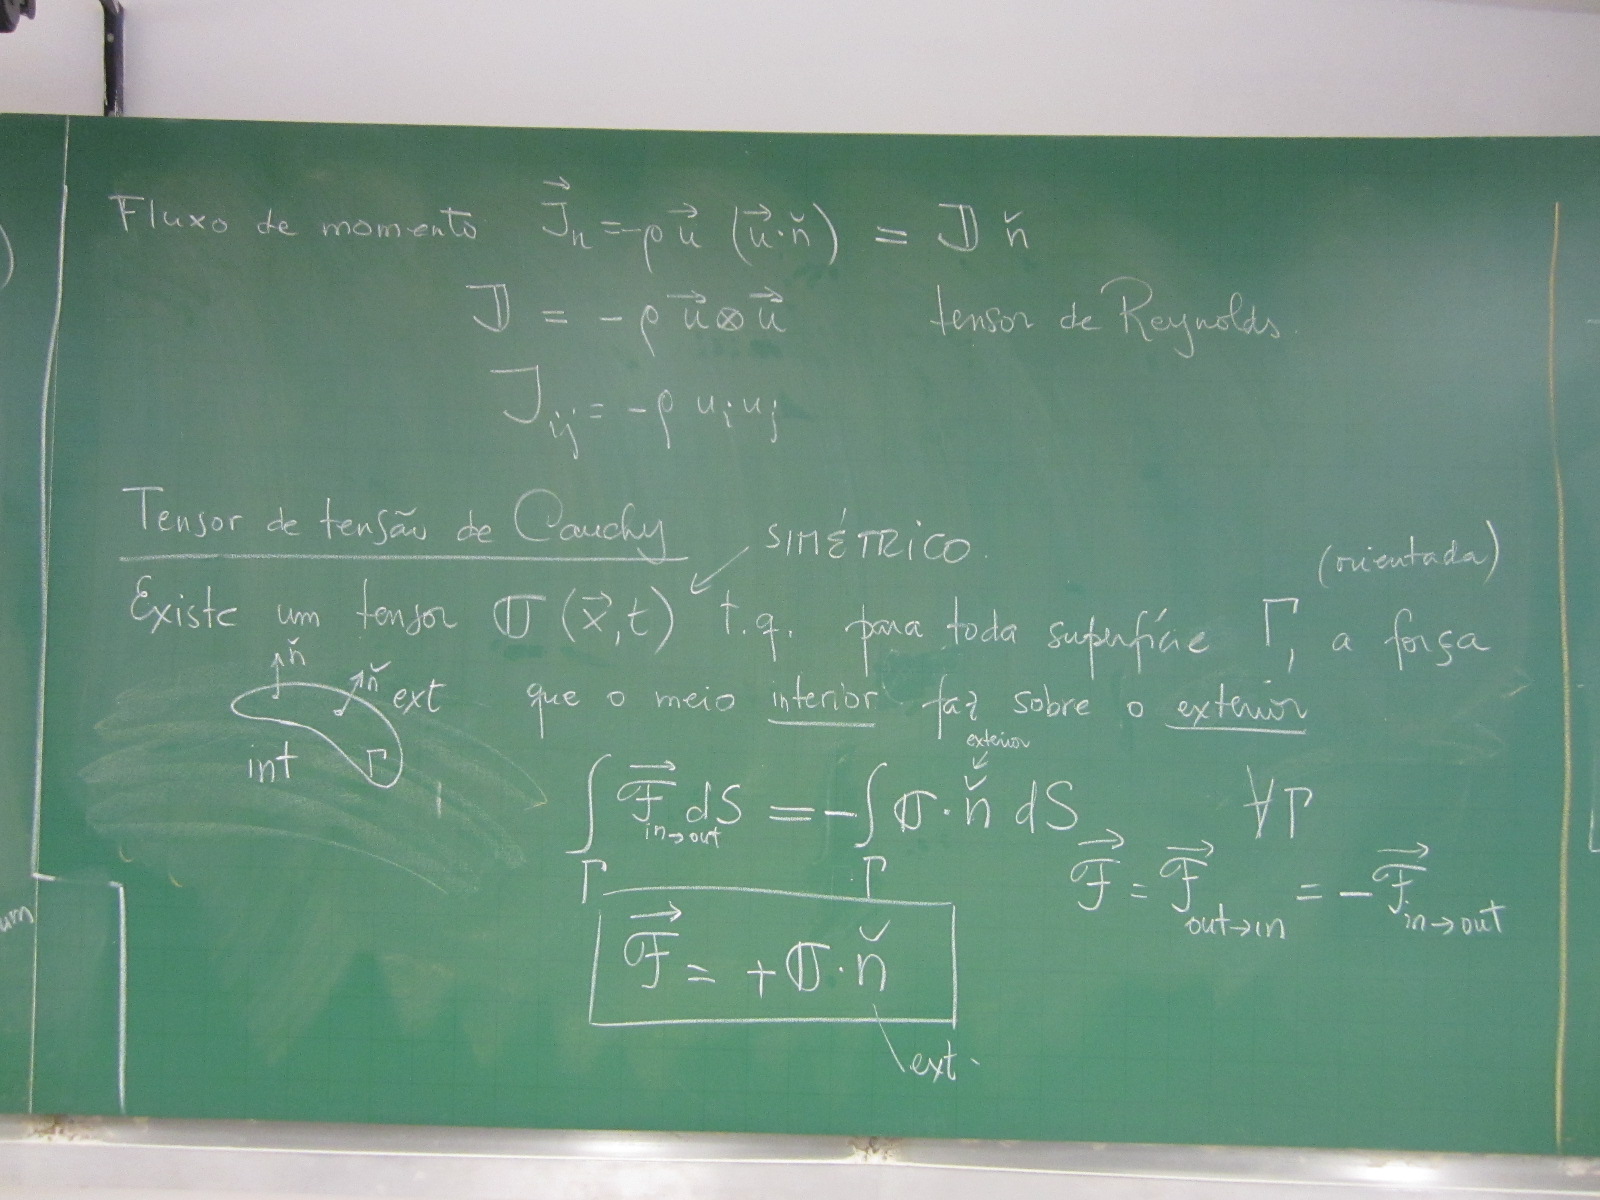 Fluxo de momento J⃗ₙ = -ρ u⃗ (u⃗·ň) = 𝕁 ň
𝕁 = -ρ u⃗⊗u⃗ tensor de Reynolds.
J_ij = -ρ u_i u_j
Tensor de tensão de Cauchy
SIMÉTRICO.
(orientada)
Existe um tensor σ(x⃗,t) t.q. para toda superfície Γ, a força
que o meio interior faz sobre o exterior
ň
ň ext
int Γ
exterior
∫_Γ F⃗_in→out dS = -∫_Γ σ·ň dS ∀Γ
F⃗ = F⃗_out→in = -F⃗_in→out
F⃗ = +σ·ň
ext.
um